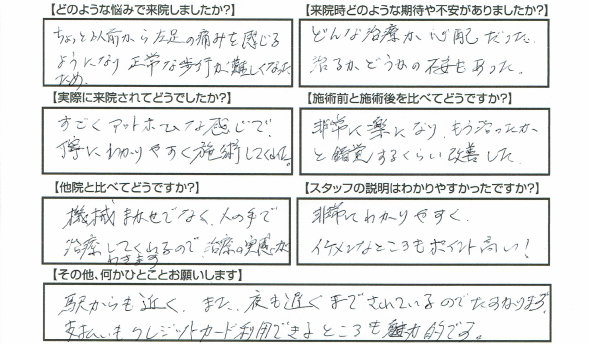 【どのような悩みで来院しましたか?】
ちょっと以前から左足の痛みを感じる
ようになり正常な歩行が難しくなった
ため。
【来院時どのような期待や不安がありましたか?】
どんな治療か心配だった。
治るかどうかの不安もあった。
【実際に来院されてどうでしたか?】
すごくアットホームな感じで、
丁寧にわかりやすく施術してくれた。
【施術前と施術後を比べてどうですか?】
非常に楽になり、もう治ったか
と錯覚するくらい改善した。
【他院と比べてどうですか?】
機械まかせでなく、人の手で
治療してくれるので、治療の実感が
わきます
【スタッフの説明はわかりやすかったですか?】
非常にわかりやすく、
イケメンなところもポイント高い!
【その他、何かひとことお願いします】
駅からも近く、また、夜も遅くまでされているのでたすかります。
支払いもクレジットカード利用できるところも魅力的です。